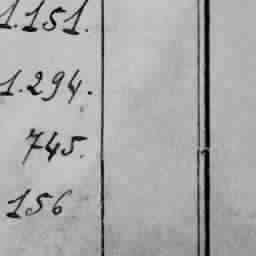 1.151.
1.294.
745.
156